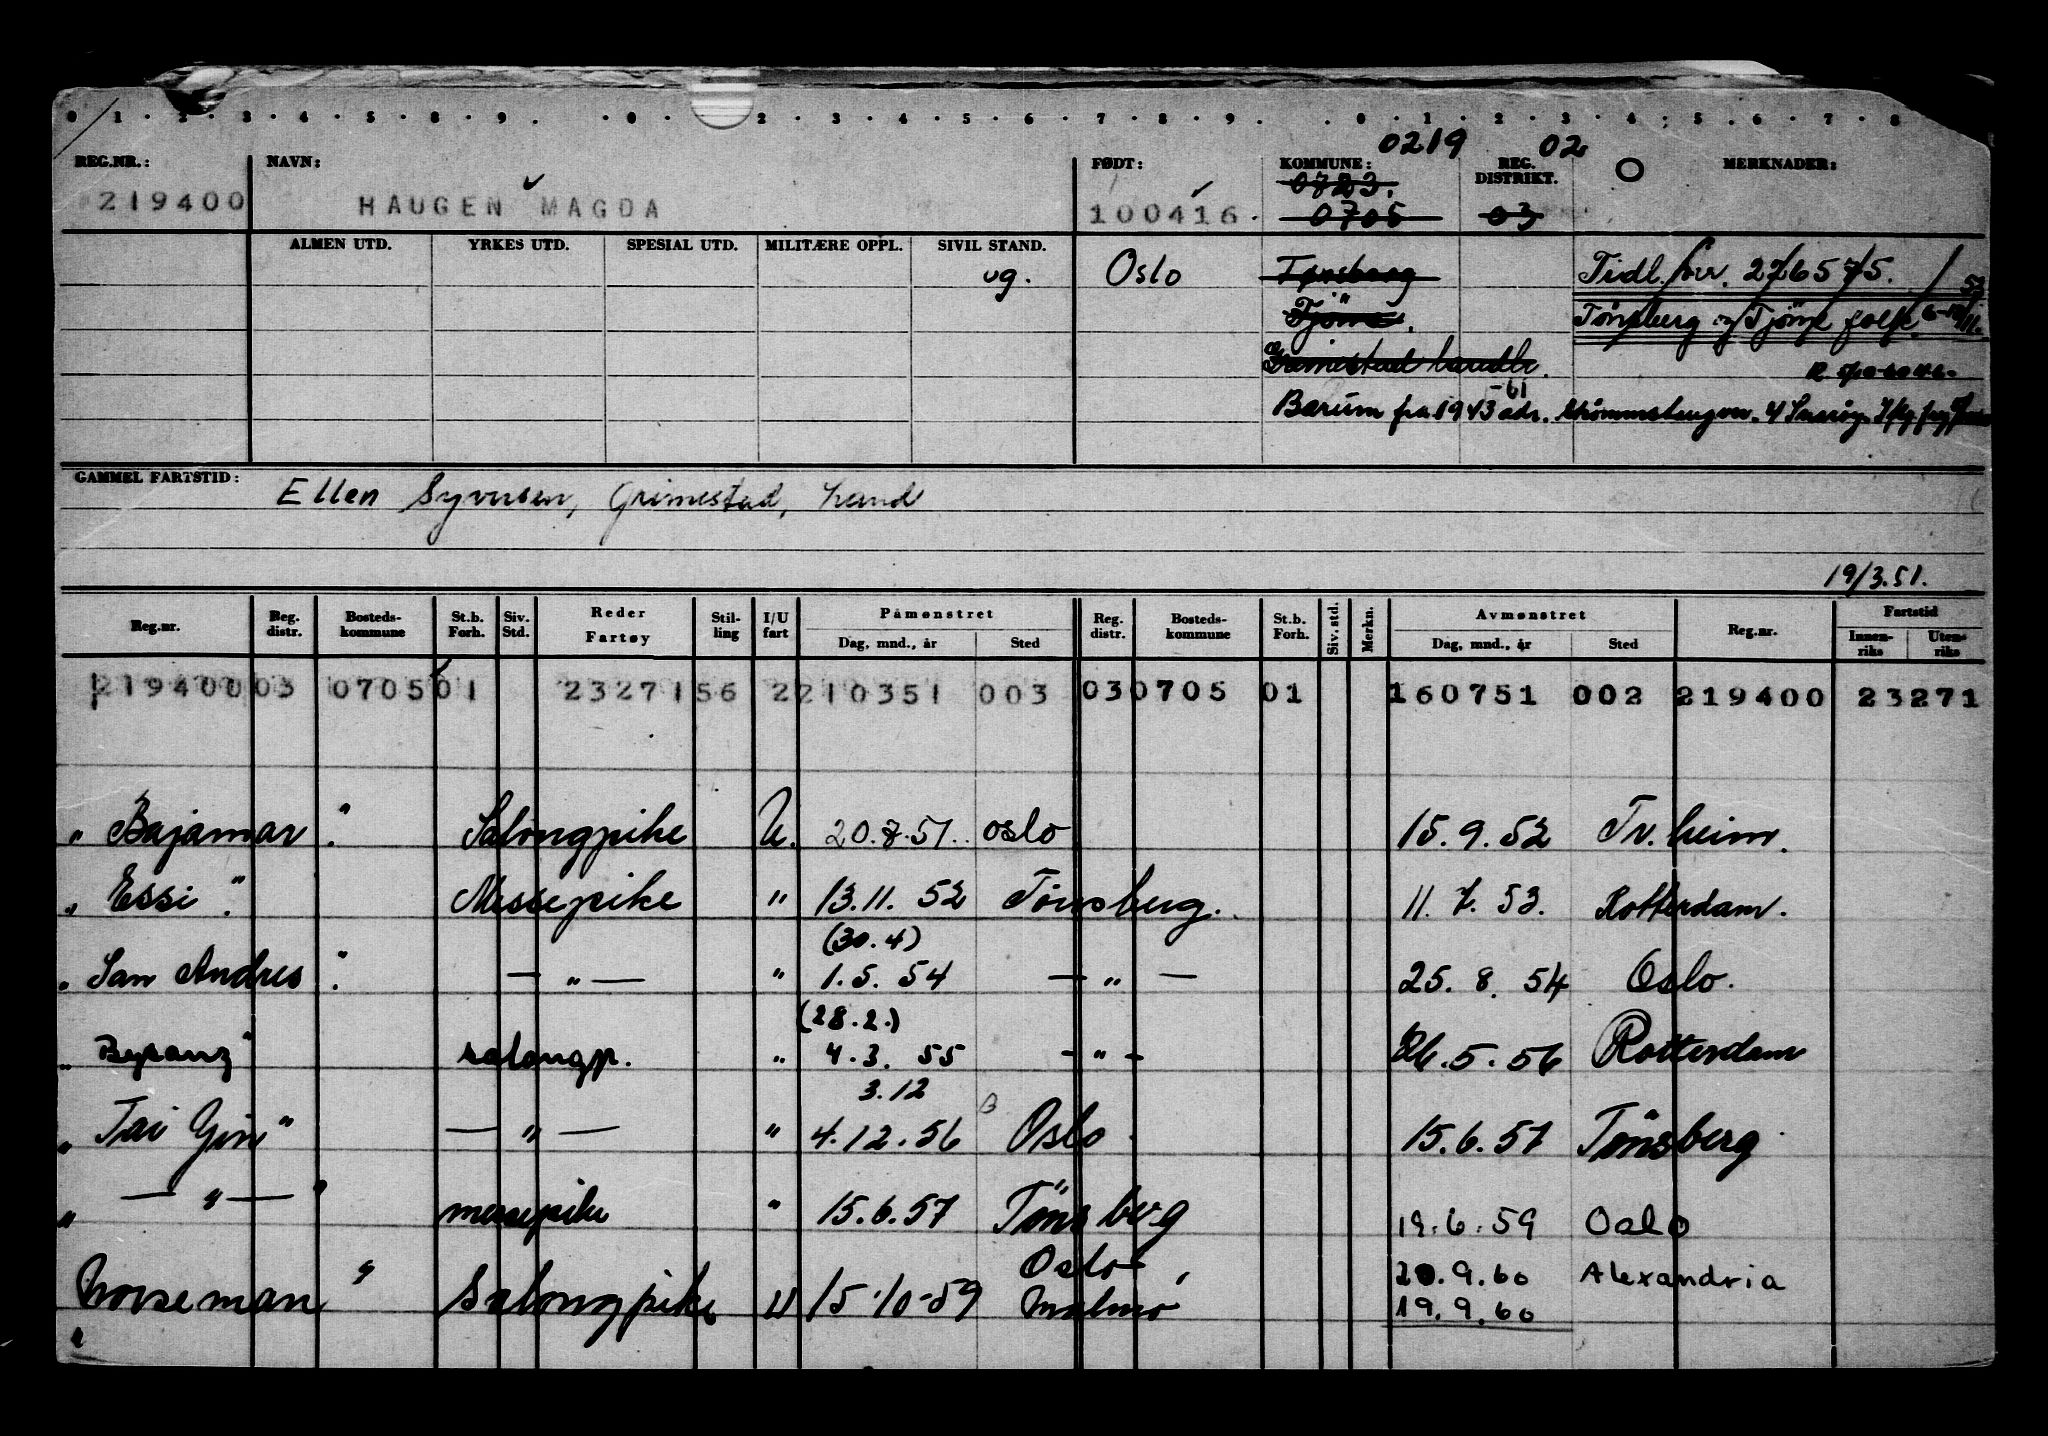 0 1 . 2 . 3 . 4 . 5 . 8 . 9 . . 0 . 2 . 3 . 4 . 5 . 6 . 7 . 8 . 9 . . 0 . 1 . 2 . 3 . 4 . 5 . 6 . 7 . 8
0219 02
REG.NR.: NAVN: FØDT: KOMMUNE: REG. DISTRIKT. O MERKNADER:
0723.
219400 HAUGEN MAGDA 100416. 0705 03
ALMEN UTD. YRKES UTD. SPESIAL UTD. MILITÆRE OPPL. SIVIL STAND.
ug. Oslo Tønsberg Tidl. nr. 276575. / 53
Tjöme. Tønsberg og Tjöme folk.
Grimestad handle.
-61
Bærum fra 1943 adr. 4 Snarøy
GAMMEL FARTSTID: Ellen Syversen, Grimestad, hand
19/3.51.
Reg.nr. Reg. distr. Bosteds-kommune St.b. Forh. Siv. Std. Reder Fartøy Stil-ling I/U fart Påmønstret Reg. distr. Bosteds-kommune St.b. Forh. Siv. std. Merkn. Avmønstret Reg.nr. Fartstid
Dag, mnd., år Sted Dag, mnd., år Sted Innen-riks Uten-riks
219400 03 0705 01 23271 56 2 210351 003 03 0705 01 160751 002 219400 23271
" Bajamar " Salongpike U. 20.8.51. oslo 15.9.52 Tr.heim.
" Essi " Messepike " 13.11.52 Tönsberg. 11.7.53. Rotterdam.
(30.4)
" San Andres " — " — " 1.5.54 — " — 25.8.54 Oslo.
(28.2.)
" Bysanz " salongp. " 4.3.55 - " - 26.5.56 Rotterdam
3.12
" Tai Yin " — " — " 4.12.56 Oslo 15.6.57 Tönsberg
" — " — " messepike " 15.6.57 Tönsberg 19.6.59 Oslo
Oslo 20.9.60 Alexandria
" Norseman " Salongpike U 15-10-59 Malmö 19.9.60